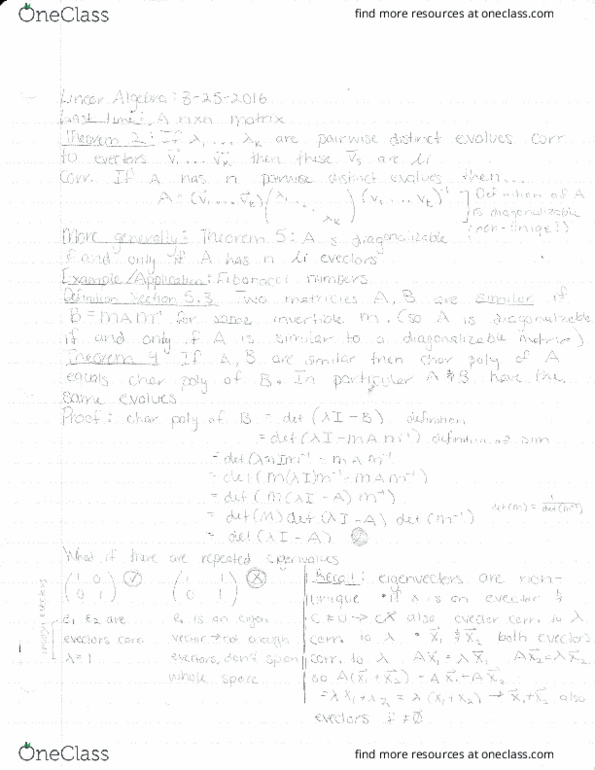 OneClass
find more resources at oneclass.com
Linear Algebra: 3-25-2016
Last time: A nxn matrix
Theorem 2: If λ, ... λk are pairwise distinct evalues corr.
to evectors v⃗, ... v⃗k then these v⃗s are li
Corr. If A has n pairwise distinct evalues then...
A = (v⃗, ... v⃗k) (λ, ... λk) (v, ... vk)⁻¹ ] Definition of A is diagonalizable (non-unique!)
More generally: Theorem 5: A is diagonalizable
if and only if A has n li evectors
Example/Application: Fibonacci numbers
Definition Section 5.3 Two matricies A, B are similar if
B = mAm⁻¹ for some invertible m. (so A is diagonalizable
if and only if A is similar to a diagonalizable matrix)
Theorem 4 If A, B are similar then char poly of A
equals char poly of B. In particular A & B have the
same evalues
Proof: char poly of B = det (λI - B) definition
= det (λI - mAm⁻¹) definition of sim
= det (λmIm⁻¹ - mAm⁻¹)
= det (m(λI)m⁻¹ - mAm⁻¹)
= det (m(λI - A)m⁻¹)
= det (M) det (λI - A) det (m⁻¹) det(m) = 1/det(m⁻¹)
= det (λI - A)
What if there are repeated eigenvalues
(1 0
0 1)
e₁ e₂ are
evectors corr.
λ = 1
(1 1
0 1)
e₁ is an eigen
vector → not enough
evectors, don't span
whole space
Recall: eigenvectors are non-
unique • if x is an evector &
c ≠ 0 → cx also evector corr. to λ
corr. to λ • x⃗₁ & x⃗₂ both evectors
corr. to λ Ax⃗₁ = λx⃗₁ Ax⃗₂ = λx⃗₂
so A(x⃗₁ + x⃗₂) = Ax⃗₁ + Ax⃗₂
= λx₁ + λx₂ = λ(x₁ + x₂) → x⃗₁ + x⃗₂ also
evectors if ≠ 0⃗
OneClass
find more resources at oneclass.com